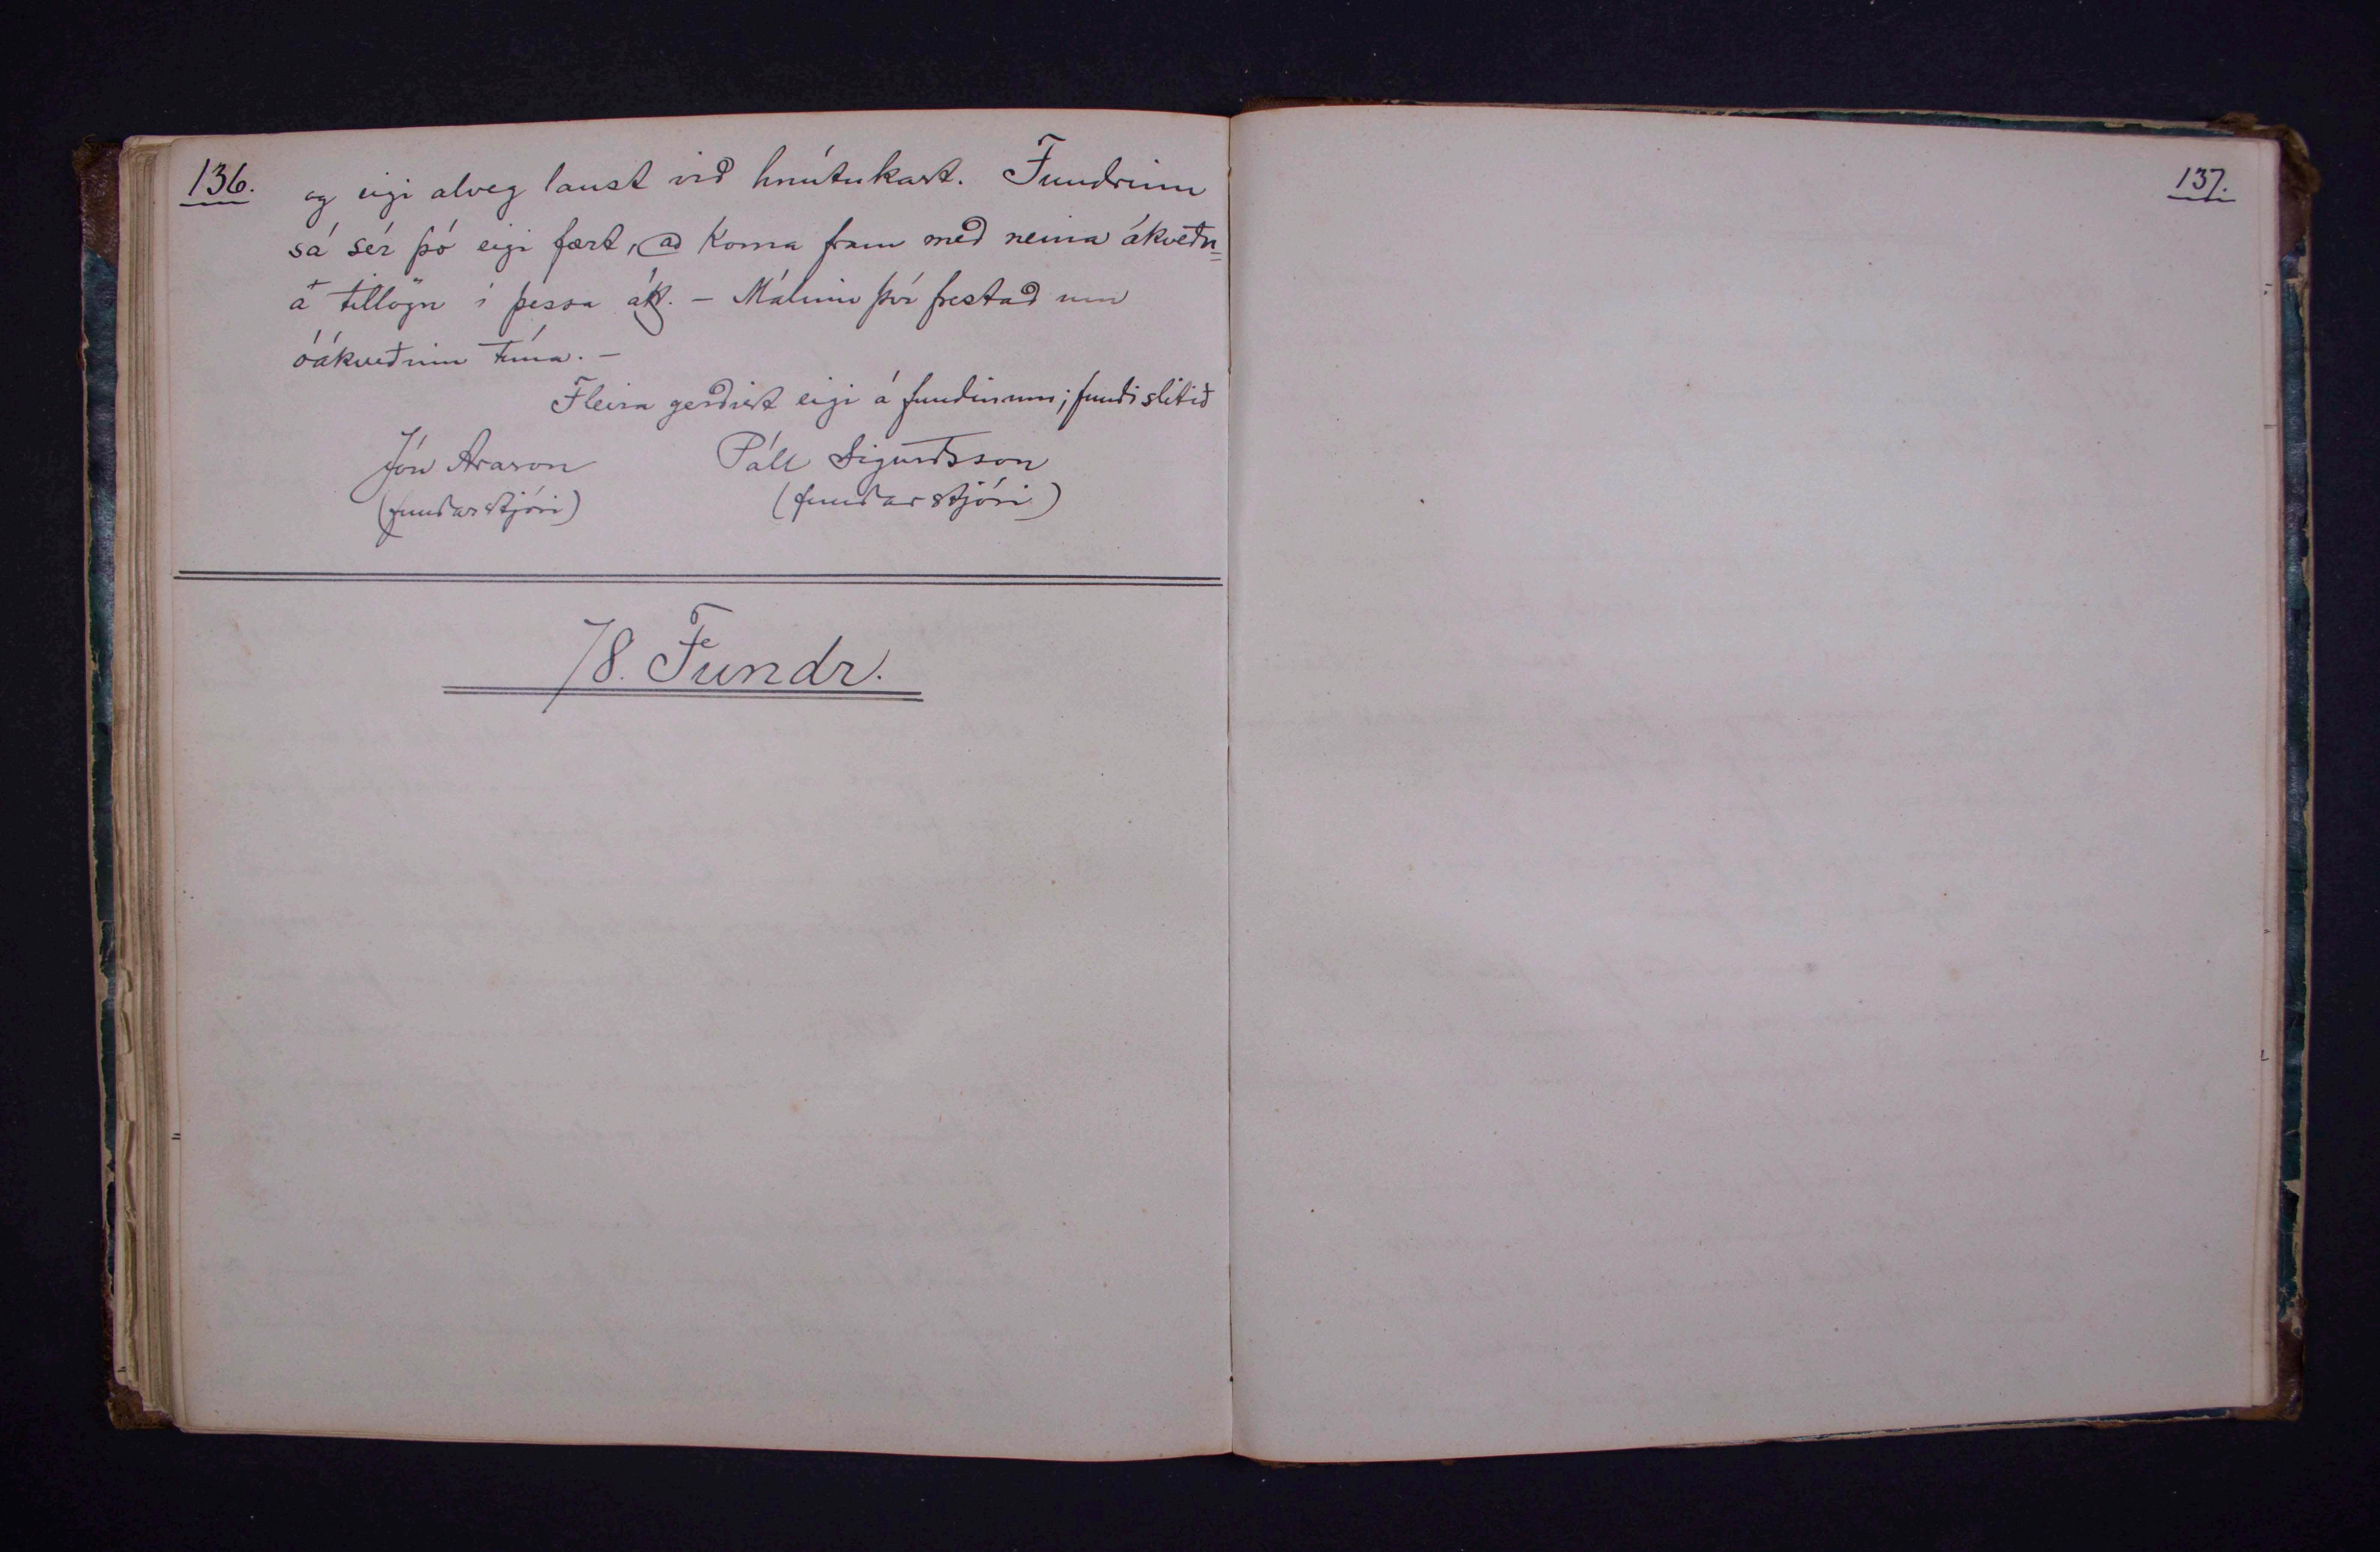 136.
og eigi alveg laust við hnútukast. Fundrinn
sá sér þó eigi fært, að koma fram með neina ákveðn=
a tillögu í þessa átt. – Málinu því frestað um
óákveðinn tíma. –
Fleira gerðist eigi á fundinum; fundi slitið
Jón Arason Páll Sigurðsson
(fundarstjóri) (fundarstjóri)
78. Fundr.
137.